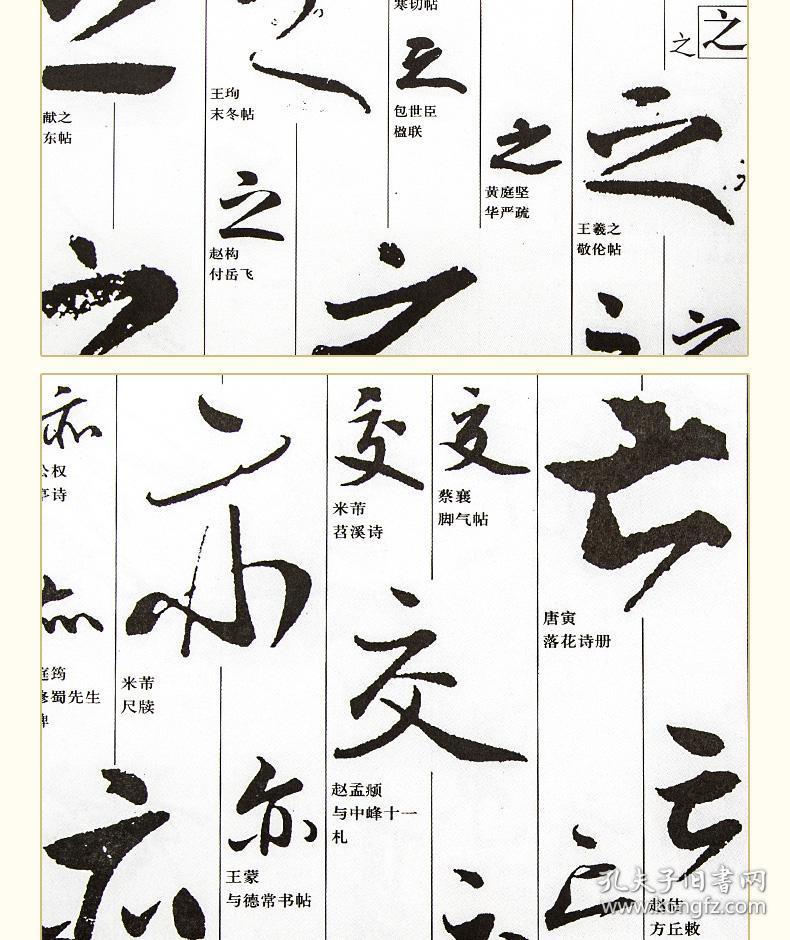 寒切帖
之
之
献之
东帖
王珣
末冬帖
之
包世臣
楹联
之
之
黄庭坚
华严疏
之
王羲之
敬伦帖
之
赵构
付岳飞
之
之
之
亦
公权
亭诗
亦
米芾
尺牍
交
米芾
苕溪诗
交
蔡襄
脚气帖
亡
唐寅
落花诗册
亦
庭筠
蜀先生
碑
交
赵孟頫
与中峰十一
札
亦
亦
王蒙
与德常书帖
亡
赵佶
方丘敕
孔夫子旧书网
www.kongfz.com